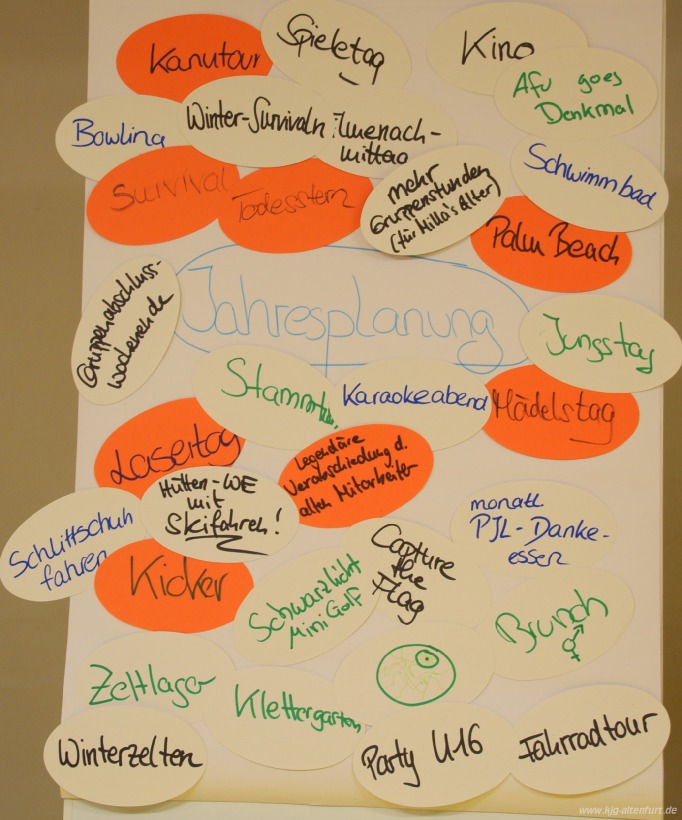 Kanutour
Spieletag
Kino
Afu goes
Denkmal
Bowling
Winter-Survival
Ilmenach-
mittag
Survival
Todesstern
mehr
Gruppenstunden
(für Milla's Alter)
Schwimmbad
Palm Beach
Gruppenabschluss-
wochenende
Jahresplanung
Jungstag
Stamm
Karaokeabend
Mädelstag
Lasertag
Legendäre
Verabschiedung d.
alten Mitarbeiter
Hütten-WE
mit
Skifahren!
Schlittschuh
fahren
monatl.
PJL-Danke-
essen
Capture
the
Flag
Kicker
Schwarzlicht
MiniGolf
Brunch
⚥
Zeltlager
Klettergarten
Winterzelten
Party U16
Fahrradtour
www.kjg-altenfurt.de